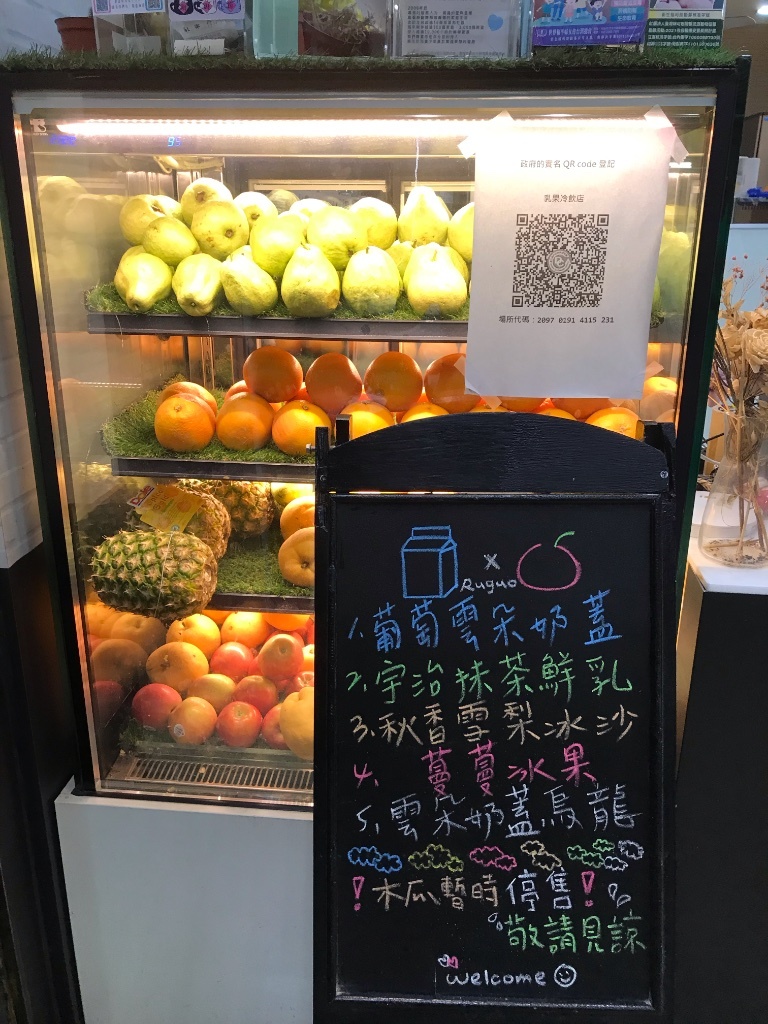 政府的實名 QR code 登記
乳果冷飲店
場所代碼：2097 0191 4115 231
x
Ruguo
1.葡萄雲朵奶蓋
2.宇治抹茶鮮乳
3.秋香雪梨冰沙
4. 蔓蔓冰果
5.雲朵奶蓋烏龍
!木瓜暫時停售!
敬請見諒
welcome